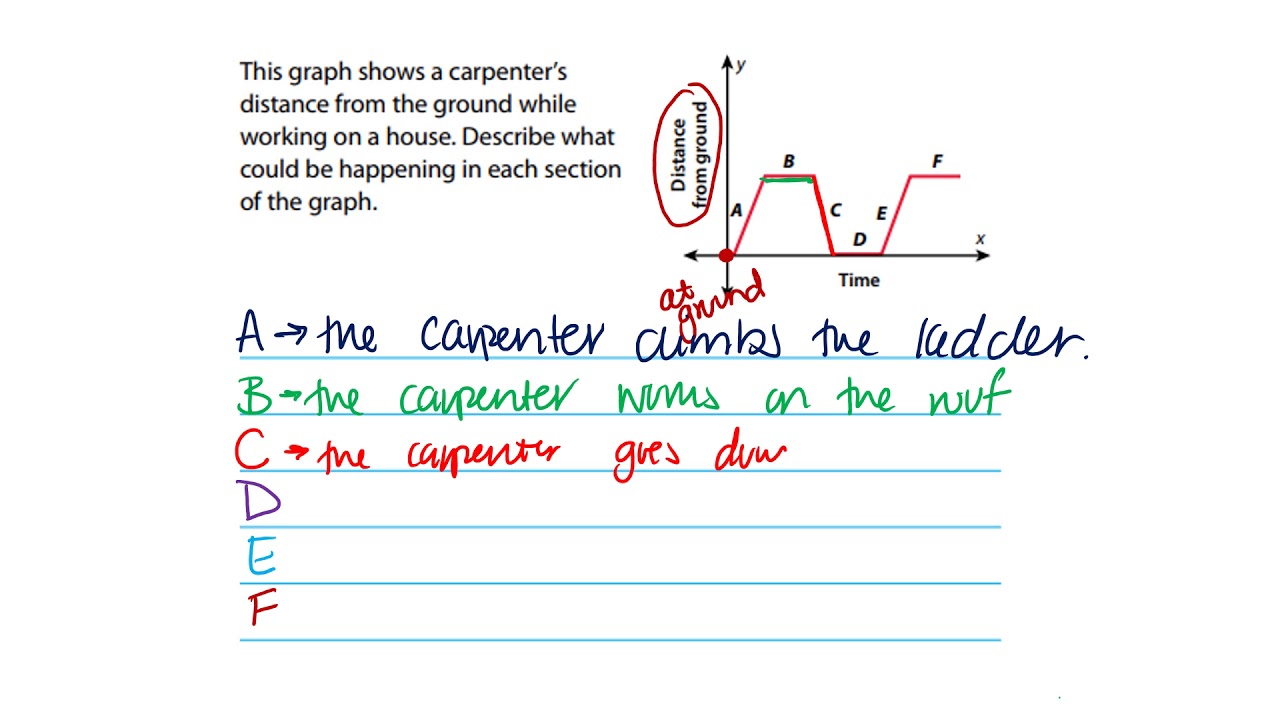 This graph shows a carpenter's
distance from the ground while
working on a house. Describe what
could be happening in each section
of the graph.
y
Distance
from ground
B
F
A
C
E
D
x
Time
at
ground
A → the carpenter climbs the ladder.
B → the carpenter works on the roof
C → the carpenter goes dow
D
E
F